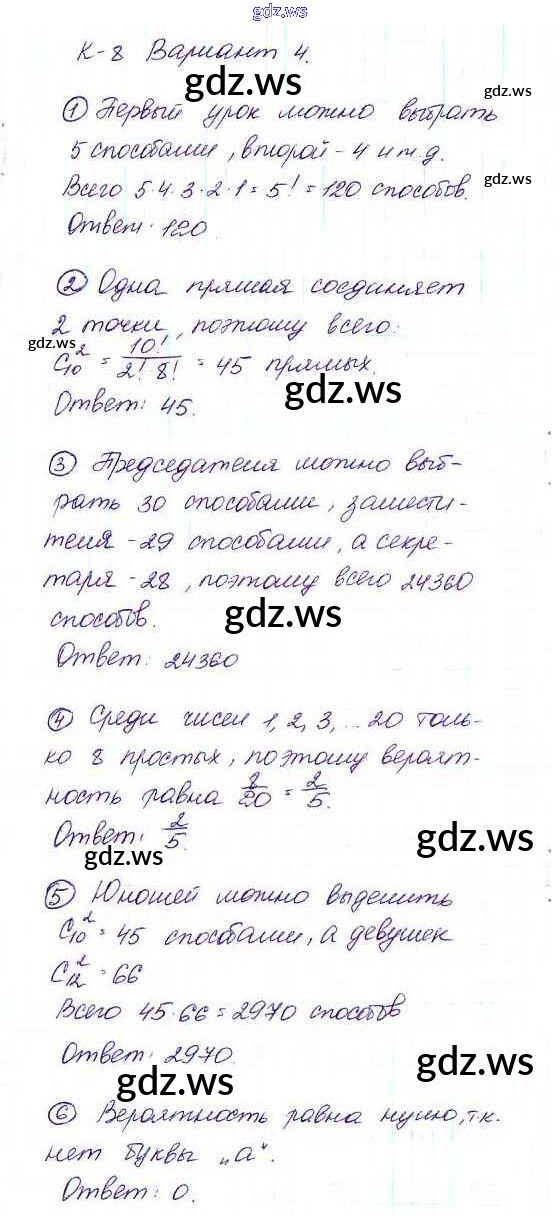 gdz.ws
К-8 Вариант 4.
gdz.ws
gdz.ws
① Первый урок можно выбрать
5 способами, второй - 4 и т.д.
gdz.ws
Всего 5·4·3·2·1 = 5! = 120 способов.
Ответ: 120
② Одна прямая соединяет
2 точки, поэтому всего:
gdz.ws
C₁₀² = 10!/2! 8! = 45 прямых.
gdz.ws
Ответ: 45.
③ Председателя можно выб-
рать 30 способами, замести-
теля - 29 способами, а секре-
таря - 28, поэтому всего 24360
способов.
gdz.ws
Ответ: 24360
④ Среди чисел 1, 2, 3, ... 20 толь-
ко 8 простых, поэтому вероят-
ность равна 8/20 = 2/5.
Ответ: 2/5.
gdz.ws
gdz.ws
⑤ Юношей можно выделить
C₁₀² = 45 способами, а девушек
C₁₂² = 66
Всего 45·66 = 2970 способов
Ответ: 2970.
gdz.ws
gdz.ws
⑥ Вероятность равна нулю, т.к.
нет буквы „а".
Ответ: 0.